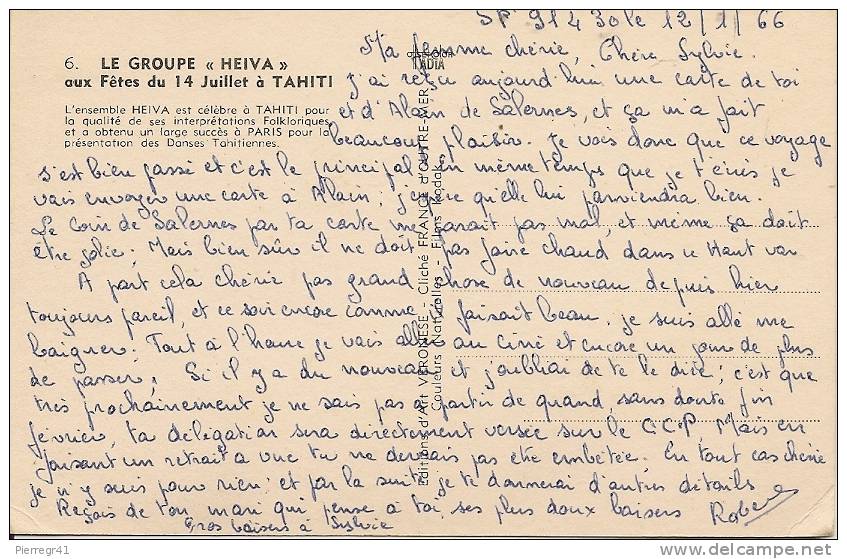 SP 91430 le 12/1/66
6. LE GROUPE « HEIVA »
aux Fêtes du 14 Juillet à TAHITI
L'ensemble HEIVA est célèbre à TAHITI pour
la qualité de ses interprétations Folkloriques
et a obtenu un large succès à PARIS pour la
présentation des Danses Tahitiennes.
Ma femme chérie, Chère Sylvie.
J'ai reçu aujourd'hui une carte de toi
et d'Alain de Salernes, et ça m'a fait
beaucoup plaisir. Je vois donc que ce voyage
s'est bien passé et c'est le principal, en même temps que je t'écris je
vais envoyer une carte à Alain ; j'espère qu'elle lui parviendra bien.
Le coin de Salernes par ta carte me parait pas mal, et même ça doit
être jolie ; Mais bien sûr il ne doit pas faire chaud dans ce Haut var
A part cela chérie pas grand chose de nouveau depuis hier
toujours pareil, et ce soir encore comme il faisait beau. je suis allé me
baigner. Tout à l'heure je vais aller au ciné et encore un jour de plus
de passer. Si il y a du nouveau et j'oubliai de te le dire ; c'est que
très prochainement je ne sais pas à partir de quand, sans doute fin
février, ta délégation sera directement versée sur le C.C.P. Mais en
faisant un retrait à vue tu ne devrais pas être embêtée. En tout cas chérie
je n'y suis pour rien ; et par la suite je te donnerai d'autres détails
Reçois de ton mari qui pense à toi, ses plus doux baisers Robert
Gros baisers à Sylvie
TADIA
Editions d'Art VERONESE - Cliché FRANCE D'OUTRE-MER
Couleurs Naturelles - Films Kodak
Pierregr41
www.delcampe.net